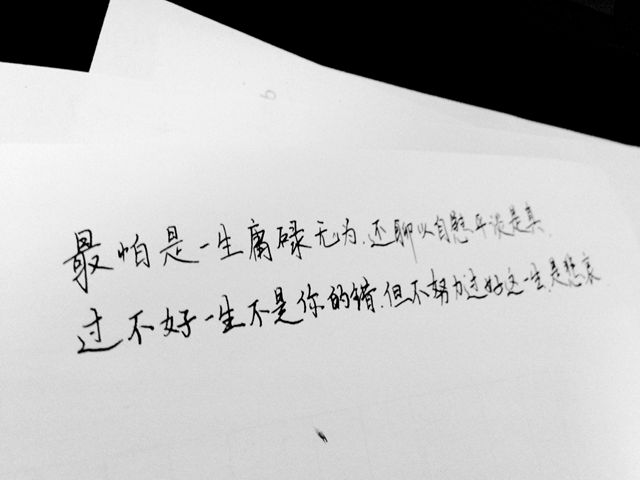 最怕是一生腐碌无为,还聊以自慰平淡是真.
过不好一生不是你的错.但不努力过好这一生.是悲哀.